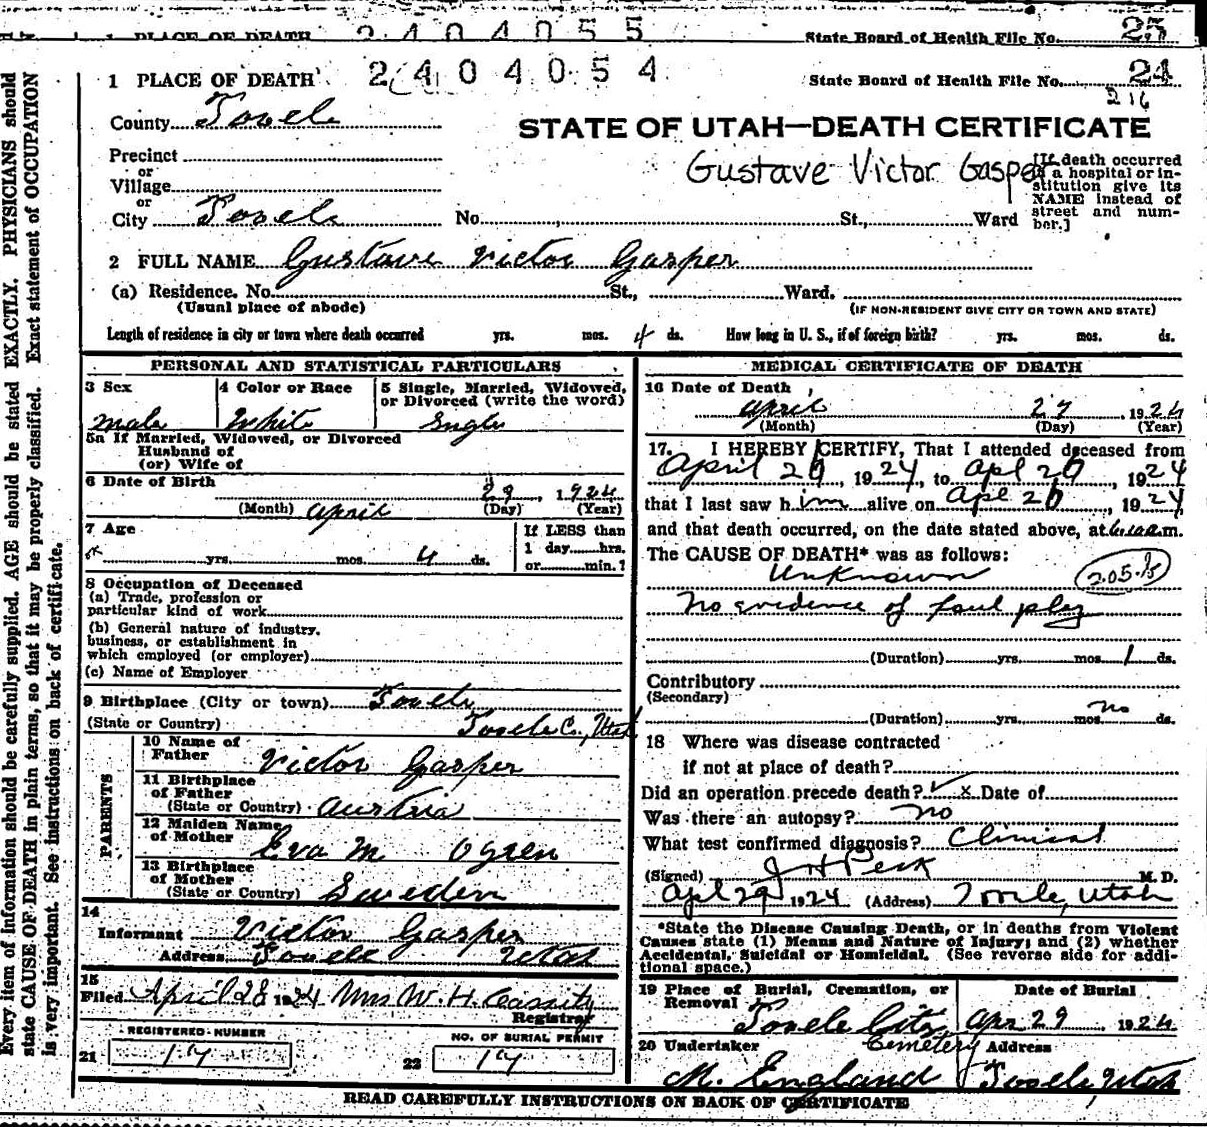 1 PLACE OF DEATH 2404055 State Board of Health File No. 25
1 PLACE OF DEATH 2404054 State Board of Health File No. 24
216
County Tooele
STATE OF UTAH—DEATH CERTIFICATE
Precinct
or
Village
or
City Tooele No. St., Ward
Gustave Victor Gasper
[If death occurred
in a hospital or in-
stitution give its
NAME instead of
street and num-
ber.]
2 FULL NAME Gustave Victor Gasper
(a) Residence. No. St., Ward.
(Usual place of abode) (IF NON-RESIDENT GIVE CITY OR TOWN AND STATE)
Length of residence in city or town where death occurred yrs. mos. 4 ds. How long in U. S., if of foreign birth? yrs. mos. ds.
PERSONAL AND STATISTICAL PARTICULARS
3 Sex
male
4 Color or Race
White
5 Single, Married, Widowed,
or Divorced (write the word)
Single
5a If Married, Widowed, or Divorced
Husband of
(or) Wife of
6 Date of Birth
23, 1924
(Month) April (Day) (Year)
7 Age
yrs. mos. 4 ds.
If LESS than
1 day hrs.
or min.?
8 Occupation of Deceased
(a) Trade, profession or
particular kind of work
(b) General nature of industry,
business, or establishment in
which employed (or employer)
(c) Name of Employer
9 Birthplace (City or town) Tooele
(State or Country) Tooele Co., Utah
PARENTS
10 Name of
Father Victor Gasper
11 Birthplace
of Father
(State or Country) Austria
12 Maiden Name
of Mother Eva M Ogren
13 Birthplace
of Mother
(State or Country) Sweden
14
Informant Victor Gasper
Address Tooele Utah
15
Filed April 28 1924 Mrs W. H. Cassity
Registrar
REGISTERED NUMBER
21 17
NO. OF BURIAL PERMIT
22 17
MEDICAL CERTIFICATE OF DEATH
16 Date of Death
April 27, 1924
(Month) (Day) (Year)
17. I HEREBY CERTIFY, That I attended deceased from
April 26, 1924, to Apl 26, 1924
that I last saw him alive on Apl 26, 1924,
and that death occurred, on the date stated above, at m.
The CAUSE OF DEATH* was as follows:
Unknown 205.b
No evidence of foul play
(Duration) yrs. mos. 1 ds.
Contributory
(Secondary) no
(Duration) yrs. mos. ds.
18 Where was disease contracted
if not at place of death?
Did an operation precede death? x Date of
Was there an autopsy? no
What test confirmed diagnosis? Clinical
(Signed) J H Peck M. D.
Apl 29 1924 (Address) Tooele, Utah
*State the Disease Causing Death, or in deaths from Violent
Causes state (1) Means and Nature of Injury; and (2) whether
Accidental, Suicidal or Homicidal. (See reverse side for addi-
tional space.)
19 Place of Burial, Cremation, or
Removal
Tooele City
Cemetery
Date of Burial
Apr 29 1924
20 Undertaker
M. England
Address
Tooele, Utah
READ CAREFULLY INSTRUCTIONS ON BACK OF CERTIFICATE
Every item of information should be carefully supplied. AGE should be stated EXACTLY. PHYSICIANS should
state CAUSE OF DEATH in plain terms, so that it may be properly classified. Exact statement of OCCUPATION
is very important. See instructions on back of certificate.